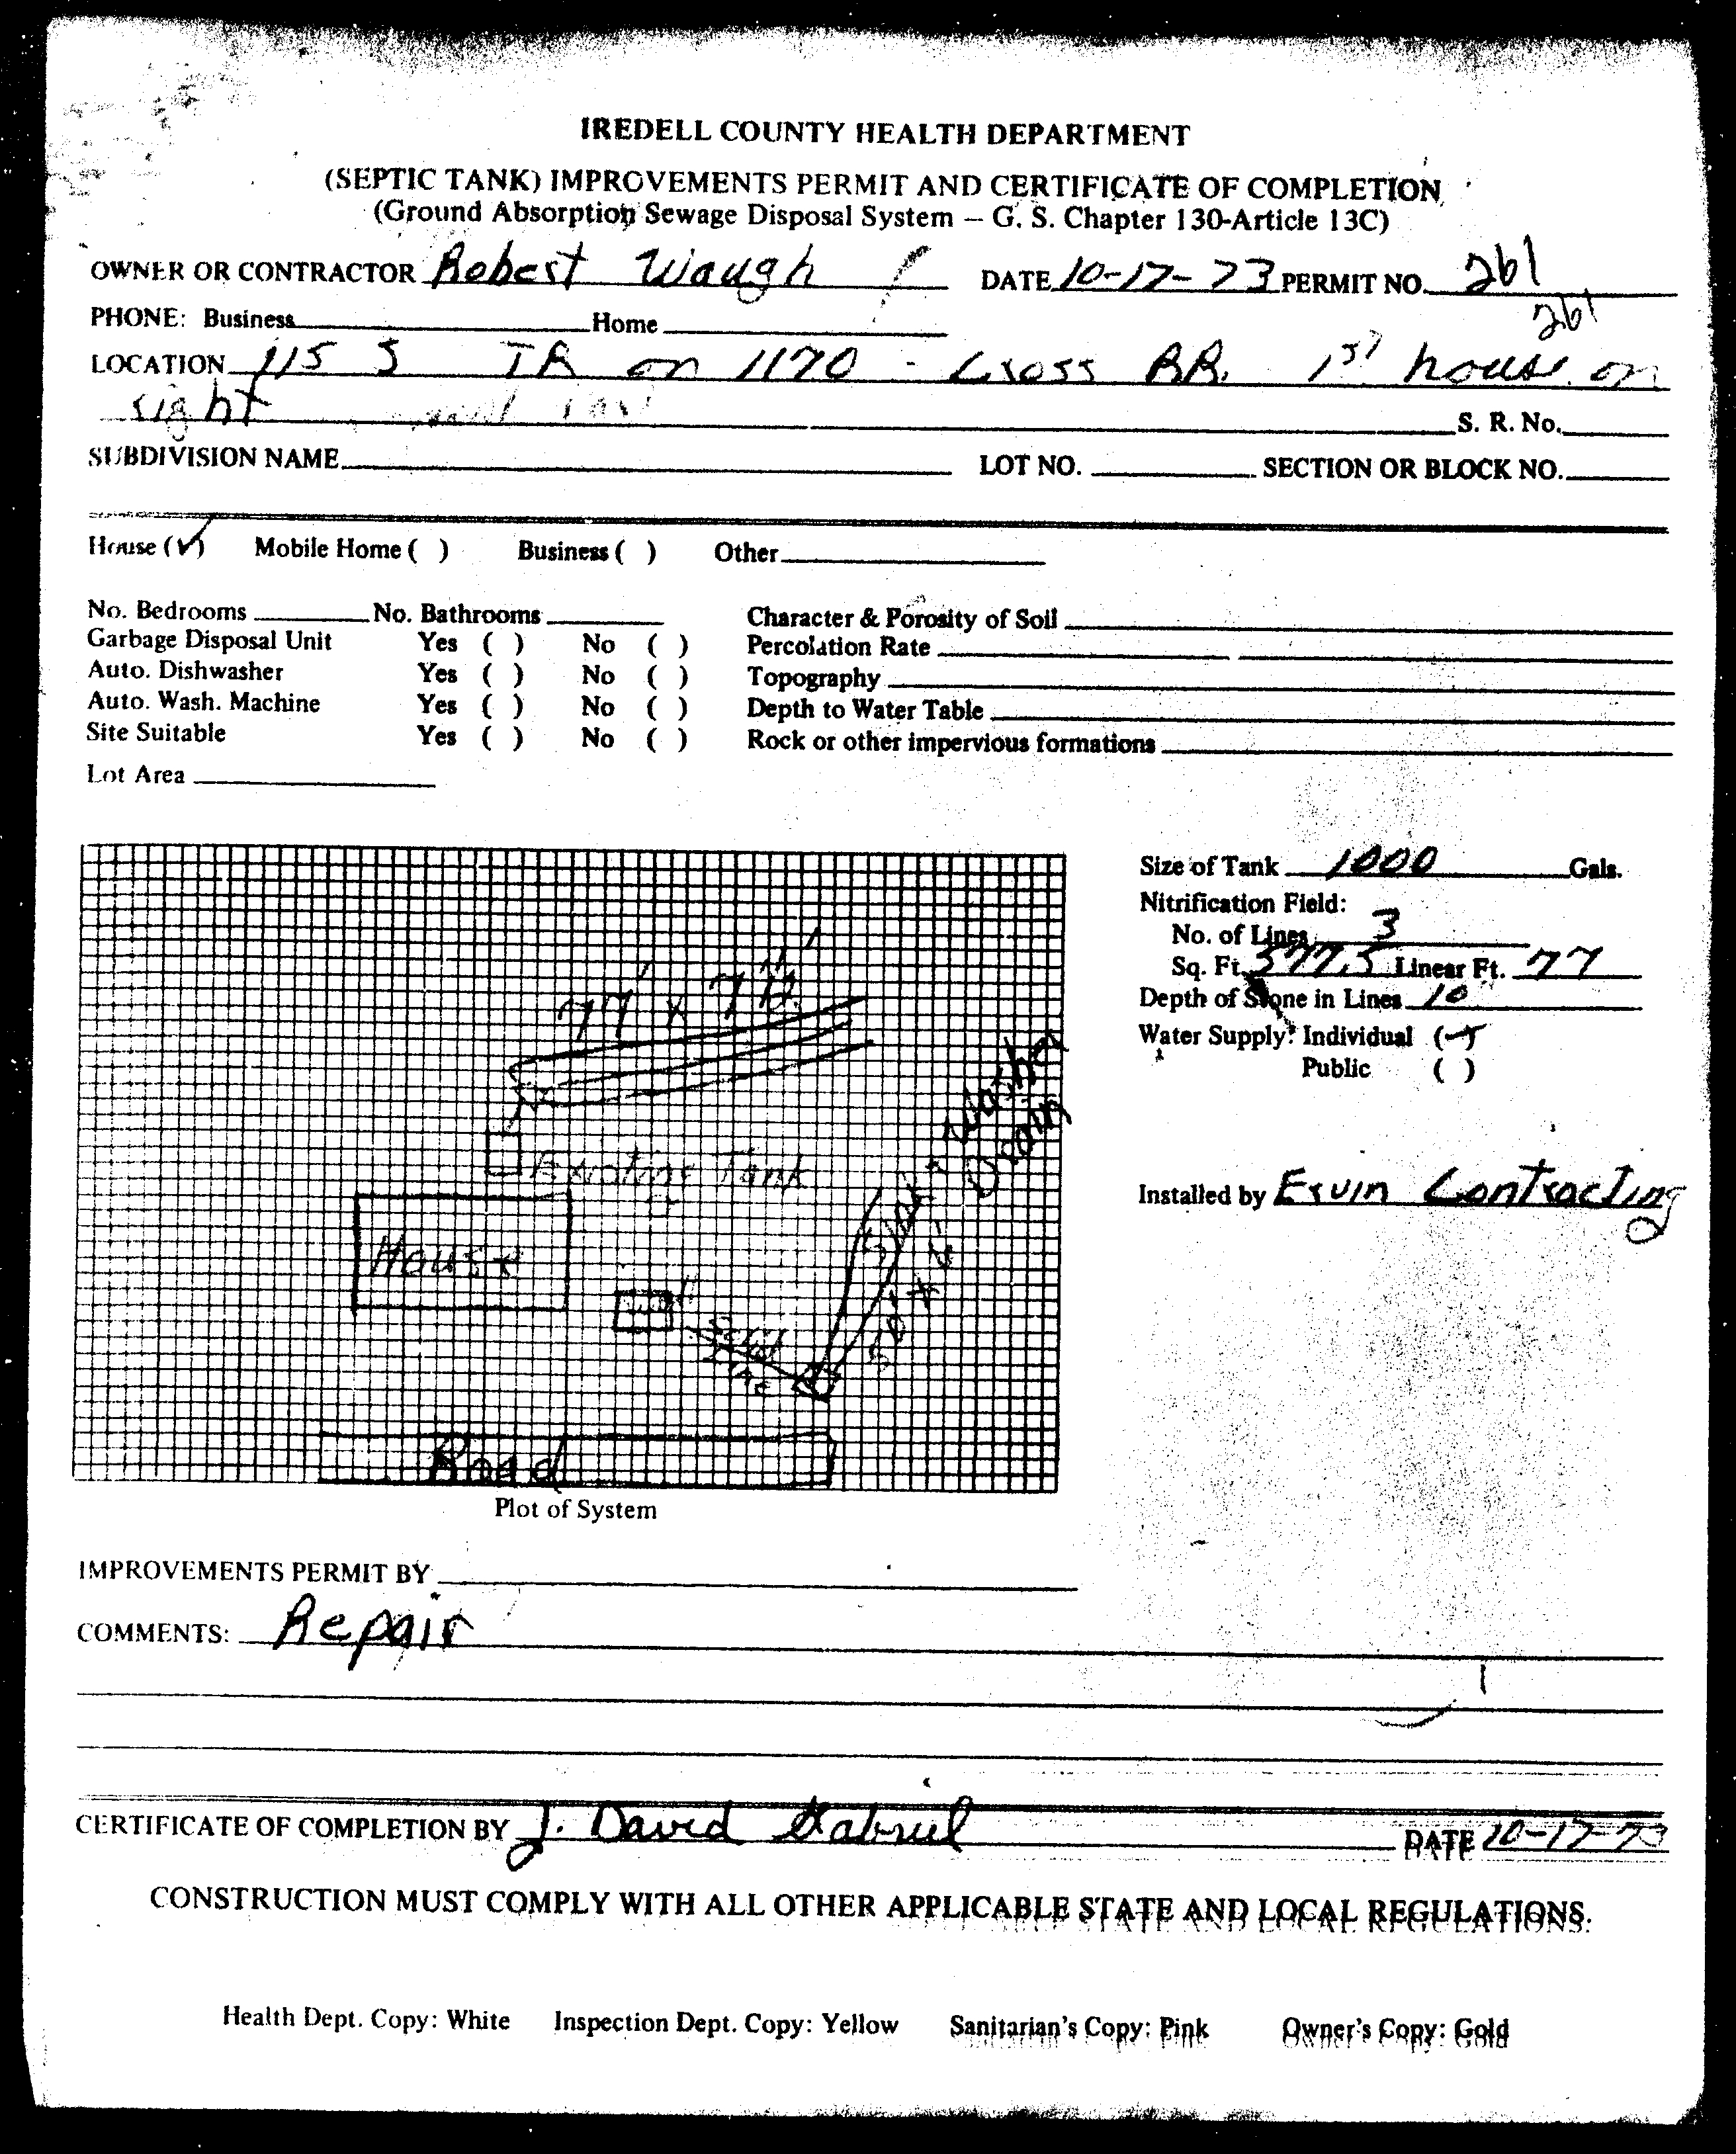 IREDELL COUNTY HEALTH DEPARTMENT
(SEPTIC TANK) IMPROVEMENTS PERMIT AND CERTIFICATE OF COMPLETION
(Ground Absorption Sewage Disposal System – G. S. Chapter 130-Article 13C)
OWNER OR CONTRACTOR Robert Waugh DATE 10-17-73 PERMIT NO. 261
PHONE: Business Home 261
LOCATION 115 S TR on 1170 - Cross RR. 1st house on
right S. R. No.
SUBDIVISION NAME LOT NO. SECTION OR BLOCK NO.
House (✓) Mobile Home ( ) Business ( ) Other
No. Bedrooms No. Bathrooms Character & Porosity of Soil
Garbage Disposal Unit Yes ( ) No ( ) Percolation Rate
Auto. Dishwasher Yes ( ) No ( ) Topography
Auto. Wash. Machine Yes ( ) No ( ) Depth to Water Table
Site Suitable Yes ( ) No ( ) Rock or other impervious formations
Lot Area
Size of Tank 1000 Gals.
Nitrification Field:
No. of Lines 3
Sq. Ft. 577.5 Linear Ft. 77
Depth of Stone in Lines 10
Water Supply: Individual (✓)
Public ( )
Installed by Ervin Contracting
77' x
Existing Tank
House
Well
Sink & Washer
Drain
Road
Plot of System
IMPROVEMENTS PERMIT BY
COMMENTS: Repair
CERTIFICATE OF COMPLETION BY J. David Gabriel DATE 10-17-73
CONSTRUCTION MUST COMPLY WITH ALL OTHER APPLICABLE STATE AND LOCAL REGULATIONS.
Health Dept. Copy: White Inspection Dept. Copy: Yellow Sanitarian's Copy: Pink Owner's Copy: Gold